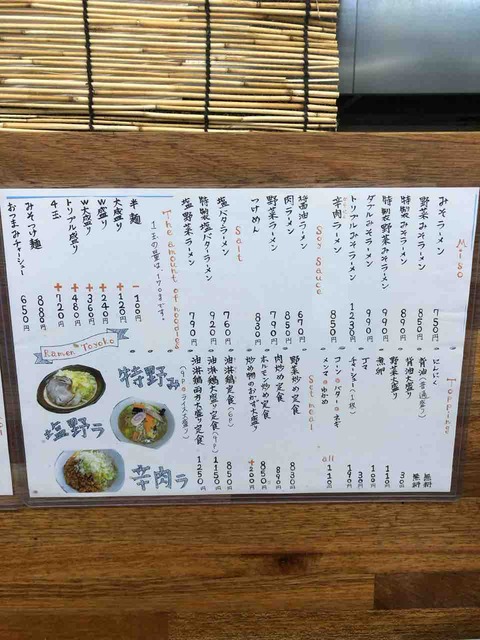 Miso
みそラーメン 750円
野菜みそラーメン 850円
特製みそラーメン 890円
特製野菜みそラーメン 990円
ダブルみそラーメン 990円
トリプルみそラーメン 1230円
辛肉ラーメン 850円
Soy Sauce
醤油ラーメン 670円
肉ラーメン 850円
野菜ラーメン 790円
つけめん 830円
Salt
塩バターラーメン 760円
特製塩バターラーメン 920円
塩野菜ラーメン 790円
The amount of noodles
1玉の量は、170gです。
半麺 -100円
大盛り +120円
W盛り +240円
W大盛り +360円
トリプル盛り +480円
4玉 +720円
みそつけ麺 880円
おつまみチャーシュー 650円
Topping
にんにく 無料
背油(普通盛り) 無料
背油大盛り 30円
野菜大盛り 110円
煮卵 110円
チャーシュー(1枚) 190円
コーン・バター・ネギ
メンマ・わかめ
all 110円
Set meal
野菜炒め定食 830円
肉炒め定食 890円
ホルモン炒め定食 850円
炒め物のおかず大盛り +200円
油淋鶏定食(6P) 850円
油淋鶏大盛り定食(9P) 1150円
油淋鶏両方大盛り定食 1250円
(9P&ライス大盛り)
Ramen Toyoko
特野み
塩野ラ
辛肉ラ